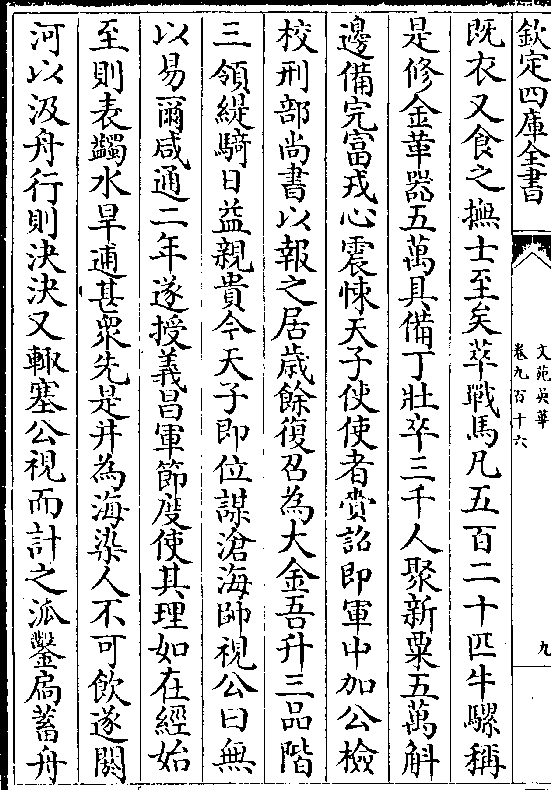 欽定四庫全書
文苑英華
卷九百十六
九
既衣又食之撫士至矣萃戰馬凡五百二十匹牛騾稱
是修金革器五萬具備丁壯卒三千人聚新粟五萬斛
邊備完富戎心震悚天子使使者賫詔即軍中加公檢
校刑部尚書以報之居歲餘復召為大金吾升三品階
三領緹騎日益親貴今天子即位謀滄海帥視公曰無
以易爾咸通二年遂授義昌軍節度使其理如在經始
至則表蠲水旱逋甚衆先是井為海染人不可飲遂闕
河以汲舟行則決決又輙塞公視而計之派鑿扄蓄舟